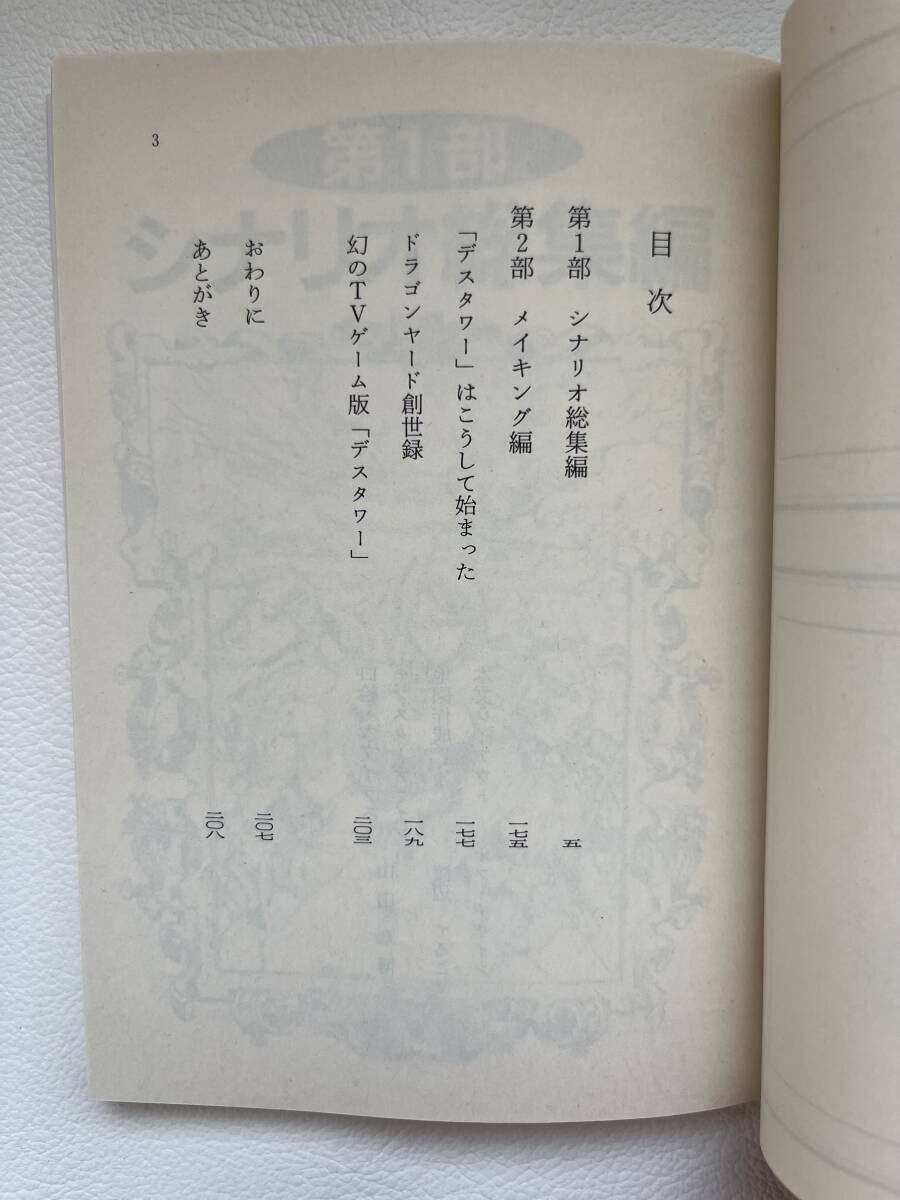 3
目次
第1部　シナリオ総集編　五
第2部　メイキング編　一七五
「デスタワー」はこうして始まった　一七七
ドラゴンヤード創世録　一八九
幻のTVゲーム版「デスタワー」　二〇三
おわりに　二〇七
あとがき　二〇八